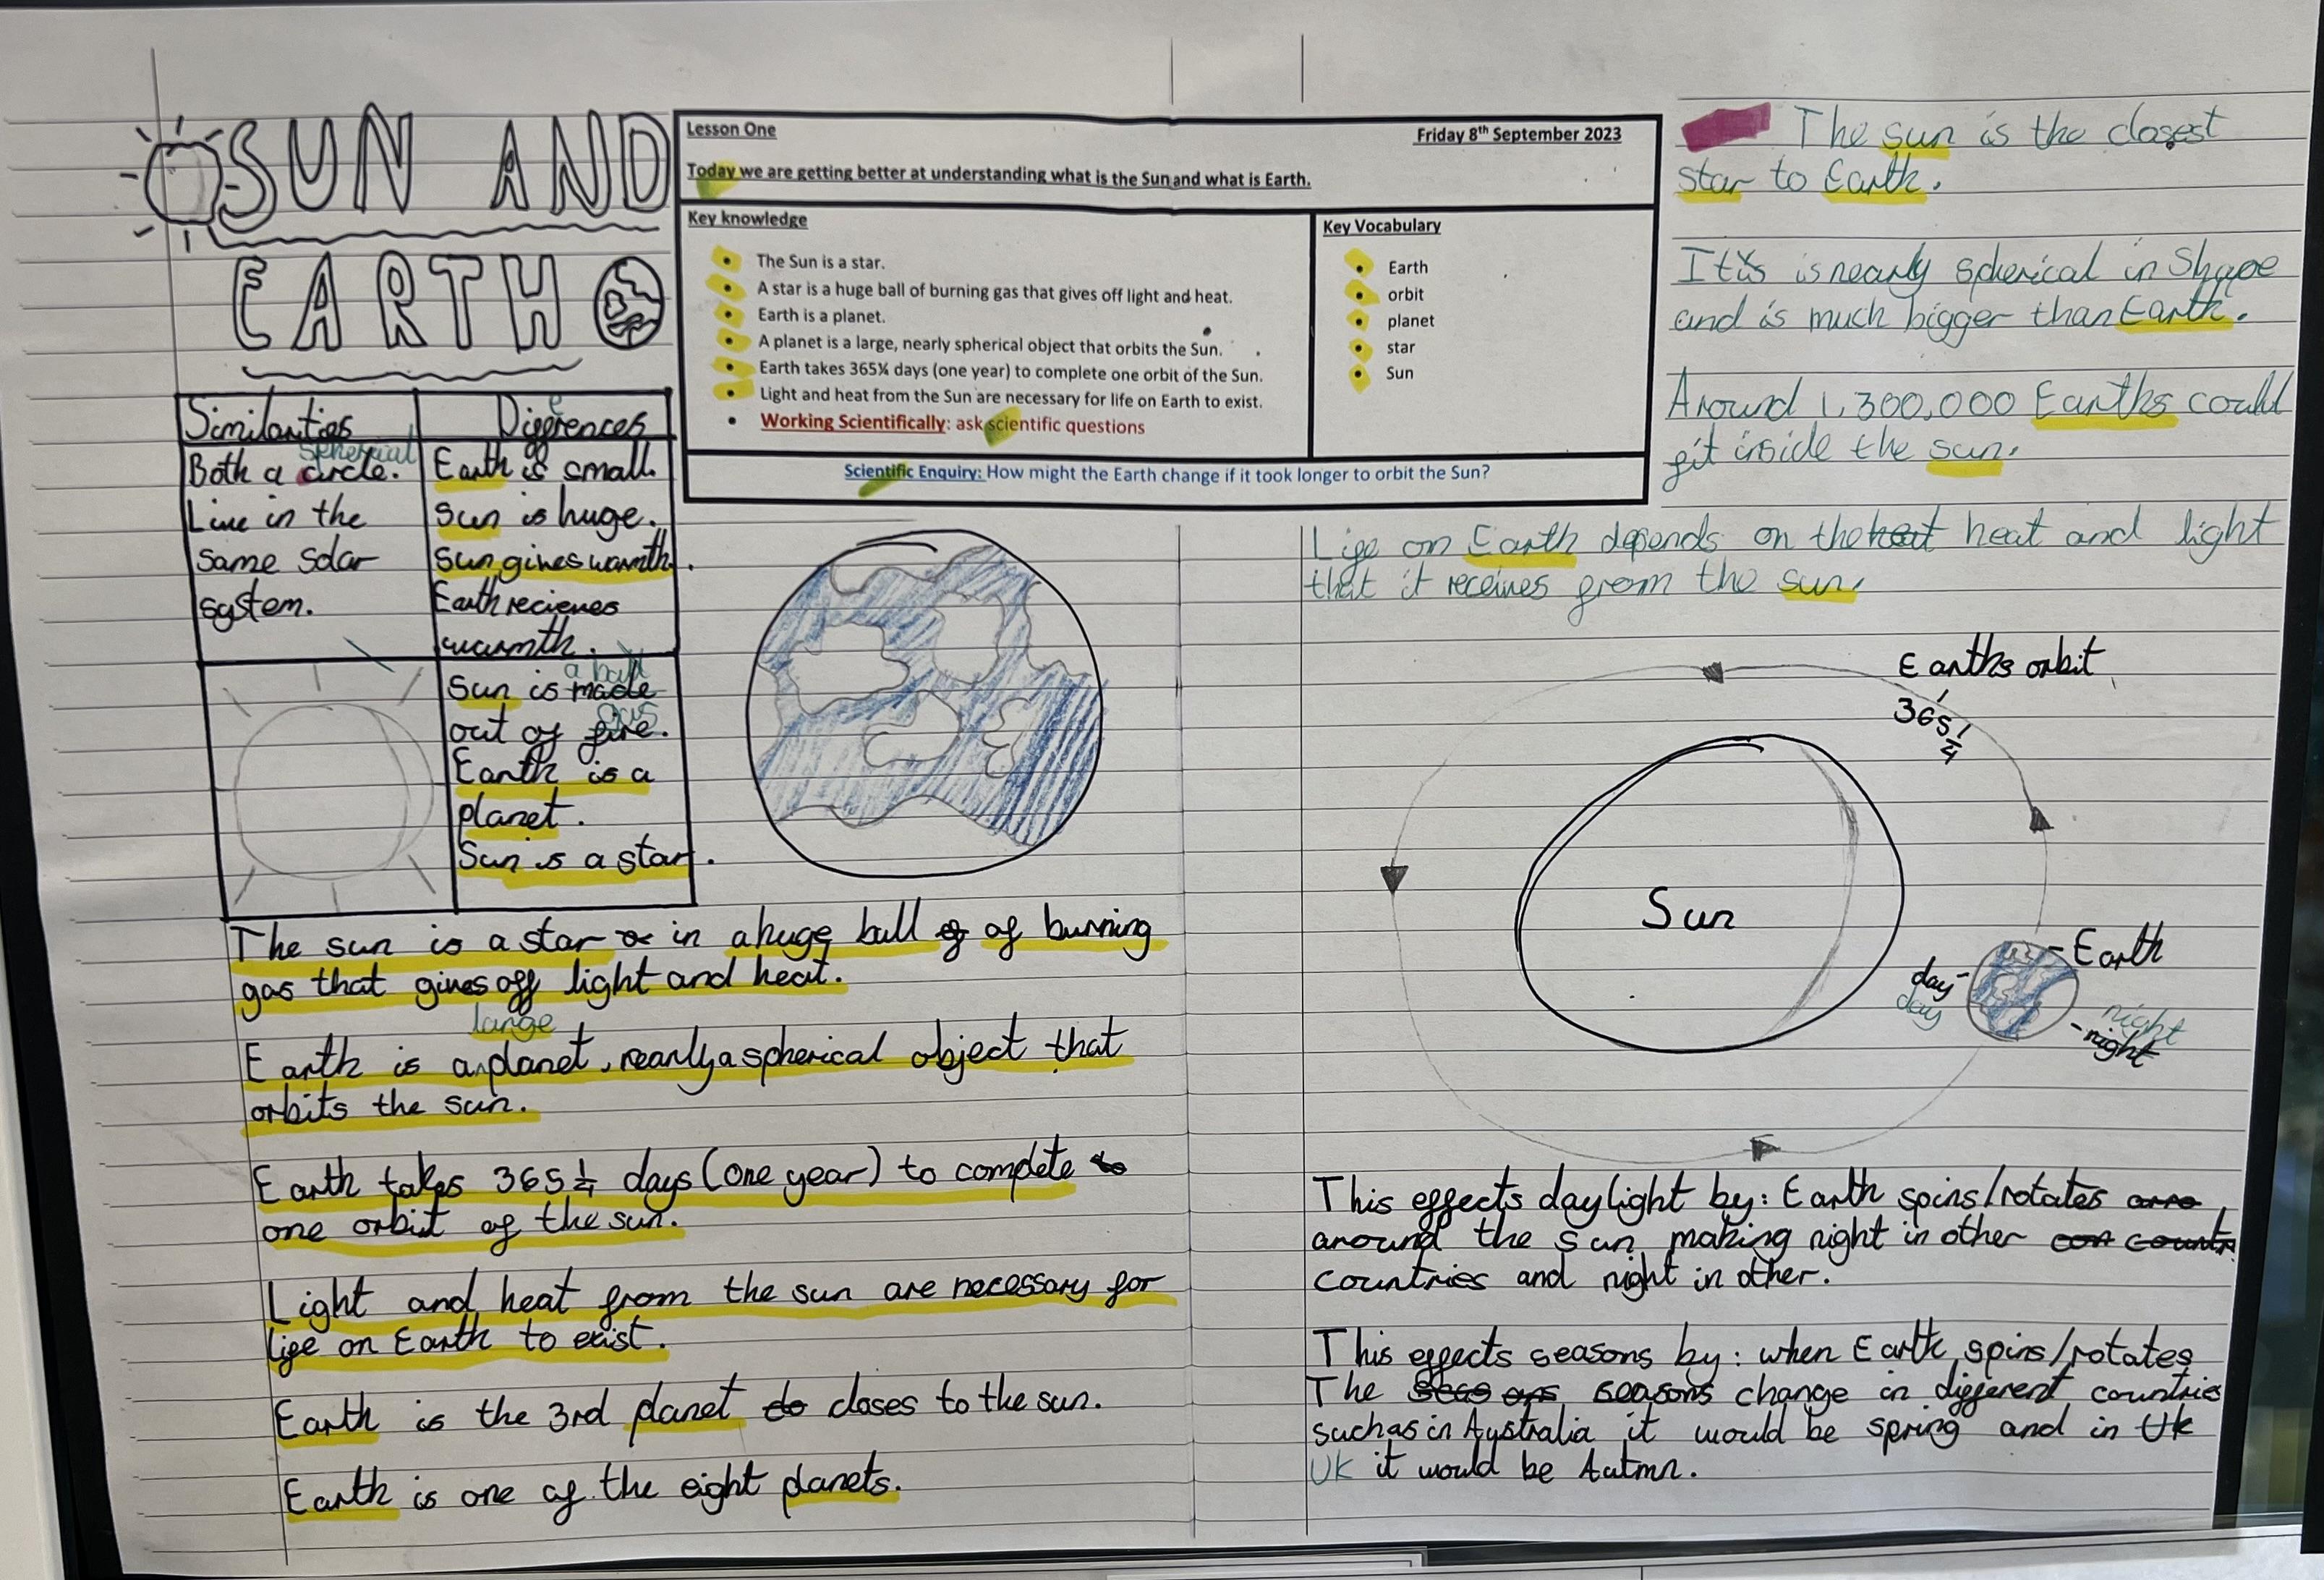 SUN AND
EARTH
Lesson One
Friday 8th September 2023
Today we are getting better at understanding what is the Sun and what is Earth.
Key knowledge
• The Sun is a star.
• A star is a huge ball of burning gas that gives off light and heat.
• Earth is a planet.
• A planet is a large, nearly spherical object that orbits the Sun.
• Earth takes 365¼ days (one year) to complete one orbit of the Sun.
• Light and heat from the Sun are necessary for life on Earth to exist.
• Working Scientifically: ask scientific questions
Key Vocabulary
• Earth
• orbit
• planet
• star
• Sun
Scientific Enquiry: How might the Earth change if it took longer to orbit the Sun?
Similarities
spherical
Both a circle.
Live in the
same solar
system.
e
Diffrences
Earth is small.
Sun is huge.
Sun gives warmth.
Earth recieves
warmth.
a ball
Sun is made
gas
out of fire.
Earth is a
planet.
Sun is a star.
The sun is a star or in a huge ball of of burning
gas that gives off light and heat.
large
Earth is a planet, nearly a spherical object that
orbits the sun.
Earth takes 365 1/4 days (one year) to compete to
one orbit of the sun.
Light and heat from the sun are necessary for
life on Earth to exist.
Earth is the 3rd planet to closes to the sun.
Earth is one of the eight planets.
The sun is the closest
star to Earth.
is nearly spherical in Shape
and is much bigger than Earth.
Around 1,300,000 Earths could
fit inside the sun.
Life on Earth depends on the heat heat and light
that it receives from the sun.
Earths orbit
365 1/4
Sun
Earth
day
day
night
night
This effects daylight by: Earth spins/rotates arro
around the sun making night in other con countr
countries and night in other.
This effects seasons by: when Earth spins/rotates
The seasons change in different countries
such as in Aystralia it would be spring and in Uk
UK it would be Autmn.